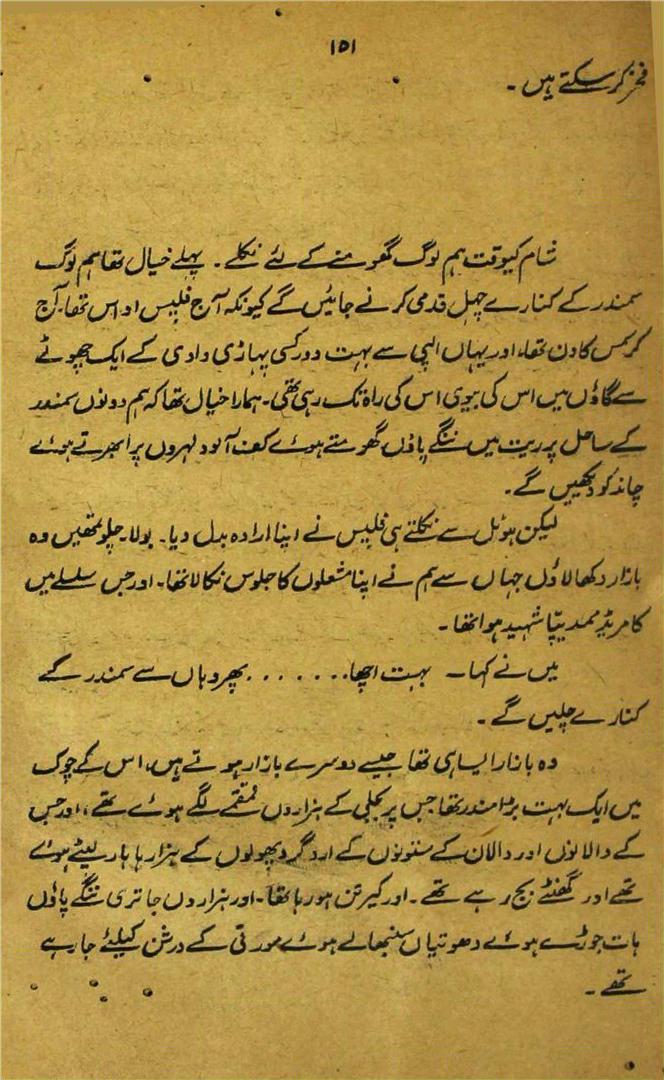 ۱۵۱
فخر کر سکتے ہیں ۔
شام کیوقت ہم لوگ گھومنے کے لئے نکلے ۔ پہلے خیال تھا ہم لوگ
سمندر کے کنارے چہل قدمی کرنے جائیں گے کیونکہ آج فلپس اداس تھا۔ آج
کرسمس کا دن تھا، اور یہاں الپی سے بہت دور کسی پہاڑی وادی کے ایک چھوٹے
سے گاؤں میں اس کی بیوی اس کی راہ تک رہی تھی ۔ ہمارا خیال تھا کہ ہم دونوں سمندر
کے ساحل پر ریت میں ننگے پاؤں گھومتے ہوئے کف آلود لہروں پر ابھرتے ہوئے
چاند کو دیکھیں گے ۔
لیکن ہوٹل سے نکلتے ہی فلپس نے اپنا ارادہ بدل دیا ۔ بولا ۔ چلو تمھیں وہ
بازار دکھا لاؤں جہاں سے ہم نے اپنا مشعلوں کا جلوس نکالا تھا ۔ اور جس سلسلے میں
کامریڈ محمد یپّا شہید ہوا تھا ۔
میں نے کہا ۔ بہت اچھا . . . . . . . پھر وہاں سے سمندر کے
کنارے چلیں گے ۔
وہ بازار ایسا ہی تھا جیسے دوسرے بازار ہوتے ہیں، اس کے چوک
میں ایک بہت بڑا مندر تھا جس پر بجلی کے ہزاروں قمقمے لگے ہوئے تھے، اور جس
کے دالانوں اور دالان کے ستونوں کے ارد گرد پھولوں کے ہزارہا ہار لپٹے ہوئے
تھے اور گھنٹے بج رہے تھے ۔ اور کیرتن ہو رہا تھا ۔ اور ہزاروں جاتری ننگے پاؤں
ہات جوڑے ہوئے دھوتیاں سنبھالے ہوئے مورتی کے درشن کیلئے جا رہے
تھے ۔